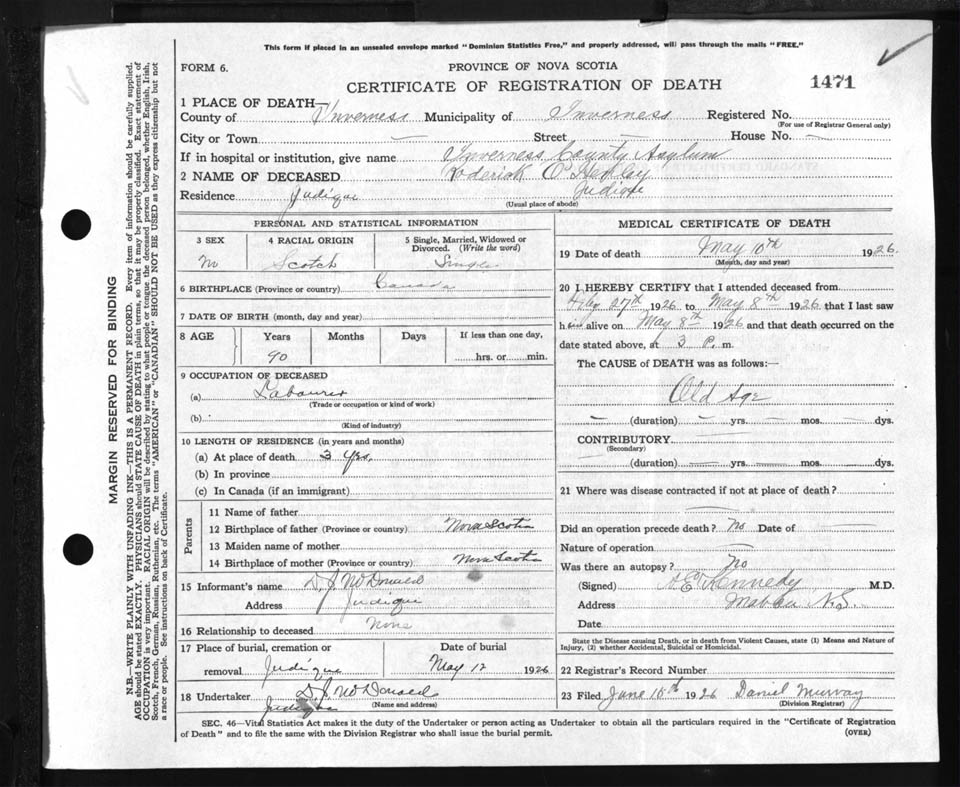 This form if placed in an unsealed envelope marked "Dominion Statistics Free," and properly addressed, will pass through the mails "FREE."
FORM 6.
PROVINCE OF NOVA SCOTIA
CERTIFICATE OF REGISTRATION OF DEATH
1471
1 PLACE OF DEATH—
County of Inverness Municipality of Inverness Registered No.
(For use of Registrar General only)
City or Town — Street — House No. —
If in hospital or institution, give name Inverness County Asylum
2 NAME OF DECEASED Roderick O'Handley
Residence Judique Judique
(Usual place of abode)
PERSONAL AND STATISTICAL INFORMATION
3 SEX 4 RACIAL ORIGIN 5 Single, Married, Widowed or Divorced. (Write the word)
M Scotch Single
6 BIRTHPLACE (Province or country) Canada
7 DATE OF BIRTH (month, day and year)
8 AGE Years Months Days If less than one day,
90 hrs. or min.
9 OCCUPATION OF DECEASED
(a) Labourer
(Trade or occupation or kind of work)
(b)
(Kind of industry)
10 LENGTH OF RESIDENCE (in years and months)
(a) At place of death 3 yrs,
(b) In province
(c) In Canada (if an immigrant)
Parents
11 Name of father
12 Birthplace of father (Province or country) Nova Scotia
13 Maiden name of mother
14 Birthplace of mother (Province or country) Nova Scotia
15 Informant's name D. J. McDonald
Address Judique
16 Relationship to deceased None
17 Place of burial, cremation or removal Judique
Date of burial
May 12 1926
18 Undertaker D. J. McDonald
Judique (Name and address)
MEDICAL CERTIFICATE OF DEATH
19 Date of death May 10th 1926
(Month, day and year)
20 I HEREBY CERTIFY that I attended deceased from
27th 1926 to May 8th 1926 that I last saw
h alive on May 8th 1926 and that death occurred on the
date stated above, at 3 P. m.
The CAUSE of DEATH was as follows:—
Old Age
— (duration) — yrs. — mos. — dys.
CONTRIBUTORY
(Secondary)
(duration) — yrs. — mos. — dys.
21 Where was disease contracted if not at place of death?
Did an operation precede death? No Date of —
Nature of operation —
Was there an autopsy? No
(Signed) Kennedy M.D.
Address Mabou N.S.
Date
State the Disease causing Death, or in death from Violent Causes, state (1) Means and Nature of Injury, (2) whether Accidental, Suicidal or Homicidal.
22 Registrar's Record Number
23 Filed June 10th 1926 Daniel Murray
(Division Registrar)
SEC. 46—Vital Statistics Act makes it the duty of the Undertaker or person acting as Undertaker to obtain all the particulars required in the "Certificate of Registration
of Death" and to file the same with the Division Registrar who shall issue the burial permit.
(OVER)
MARGIN RESERVED FOR BINDING
N.B.—WRITE PLAINLY WITH UNFADING INK—THIS IS A PERMANENT RECORD. Every item of information should be carefully supplied.
AGE should be stated EXACTLY. PHYSICIANS should STATE CAUSE OF DEATH in plain terms, so that it may be properly classified. Exact statement of
OCCUPATION is very important. RACIAL ORIGIN will be described by stating to what people or tongue the deceased person belonged, whether English, Irish,
Scotch, French, German, Russian, Ruthenian, etc. The terms "AMERICAN" or "CANADIAN" SHOULD NOT BE USED as they express citizenship but not
a race or people. See instructions on back of Certificate.